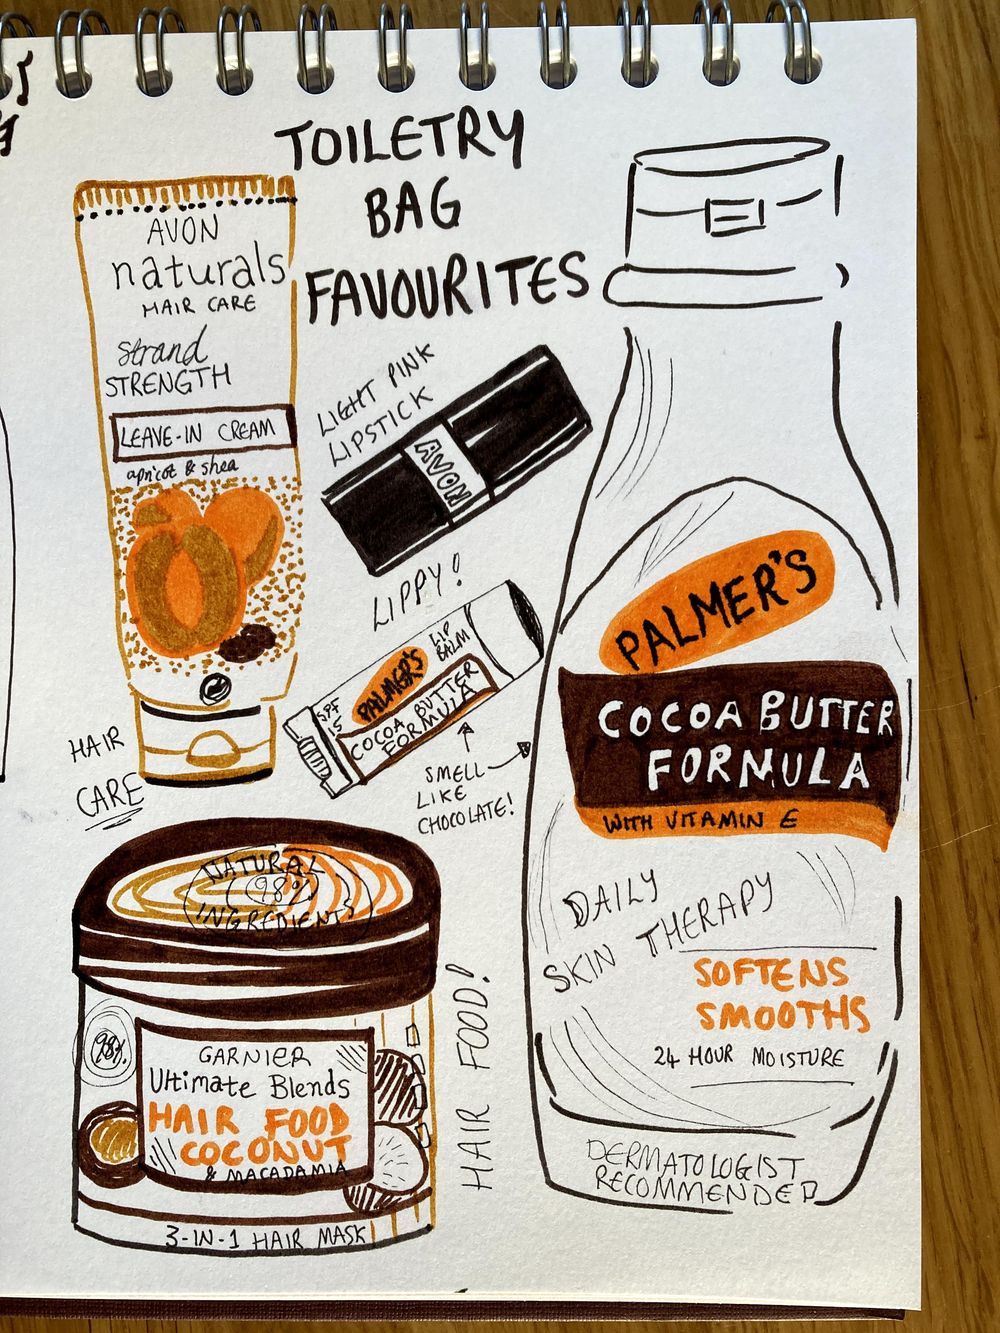 TOILETRY
BAG
FAVOURITES
AVON
naturals
HAIR CARE
Strand
STRENGTH
LEAVE-IN CREAM
apricot & shea
HAIR
CARE
LIGHT PINK
LIPSTICK
AVON
LIPPY!
SPF
15
PALMER'S
LIP
BALM
COCOA BUTTER
FORMULA
SMELL
LIKE
CHOCOLATE!
PALMER'S
COCOA BUTTER
FORMULA
WITH VITAMIN E
DAILY
SKIN THERAPY
SOFTENS
SMOOTHS
24 HOUR MOISTURE
DERMATOLOGIST
RECOMMENDED
NATURAL
98%
INGREDIENTS
98%
GARNIER
Ultimate Blends
HAIR FOOD
COCONUT
& MACADAMIA
3-IN-1 HAIR MASK
HAIR FOOD!